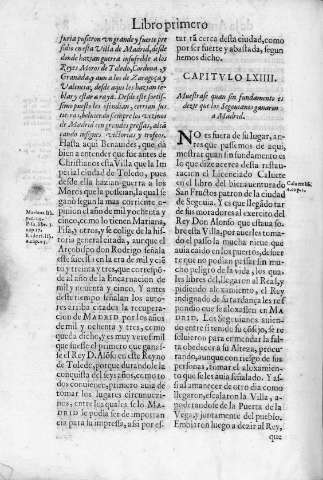 Libro primero
furia pusieron un grande y fuerte pre
sidio en esta Villa de Madrid, desde
donde hazian guerra insufrible a los
Reyes Moros de Toledo, Cordoua, y
Granada, y aun a los de Zaragoça y
Valencia, desde aqui les hazian tem
blar, y estar a raya. Desde este fortis-
simo puesto les
tierras, boluiendo siempre los vezinos
de Madrid con grandes pressas, al
cançando insignes victorias y trofeos.
Hasta aqui Benauides, que da
bien a entender que fue antes de
Christianos esta Villa que la Im
perial ciudad de Toledo, pues
desde ella hazian guerra a los
Moros que la posseian, la qual se
ganò segun la mas corriente o-
pinion el año de mil y ochenta y
cinco, como lo tienen Mariana,
Pisa, y otros, y se colige de la his
toria general citada, aunque el
Arçobispo don Rodrigo señala
este sucesso en la era de mil y cié
to y treinta y tres, que correspó-
de al año de la Encarnacion de
mil y nouenta y cinco. Y antes
deste tiempo señalan los auto-
res arriba citados la recupera-
cion de MADRID por los años
de mil y ochenta y tres, como
queda dicho, y es muy verisimil
que fuesse el primero que ganas
se el Rey D. Alóso en este Reyno
de Toledo, porque durandole la
conquista del seys años, como to
dos conuienen, primero auia de
tomar los lugares circunuezi-
nos, entre los quales se lo MA-
DRID le podia ser de importan
cia para su impressa, assi por es-
tar tã cerca desta ciudad, como
por ser fuerte y abastada, segun
hemos dicho.
CAPITVLO LXIIII.
Muestrase quan sin fundamento se
dize que los Segouianos ganaron
a Madrid.
NO es fuera de su lugar, an-
tes que passemos de aqui,
mostrar quan sin fundamento es
lo que dize acerca desta restau-
racion el Licenciado Caluete
en el libro del bienauenturado
San Fructos patron de la ciudad
de Segouia. Y es que llegado tar
de sus moradores al exercito del
Rey Don Alonso que sitiaua so-
bre esta Villa, por auerles toma-
do el passo la mucha nieue que
auia caido en los puertos, por dõ
de no podian passar sin mu-
cho peligro de la vida, los qua-
les libres del, llegaron al Rea, y
pidiendo aloxamiento, el Rey
indignado de su tardança les res
pondio que se aloxassen en MA-
DRID. Los Segouianos auien-
do entre si tenido su cósejo, se re
soluieron para enmendar la fal
ta obedecer a su Alteza, procu-
rando, aunque con riesgo de sus
personas, tomar el aloxamien-
to que se les auia señalado. Y as-
si al amanecer de otro dia como
llegaron, escalaron la Villa, a-
poderandose de la Puerta de la
Vega, y juntamente del pueblo.
Embiaron luego a dezir al Rey,
que